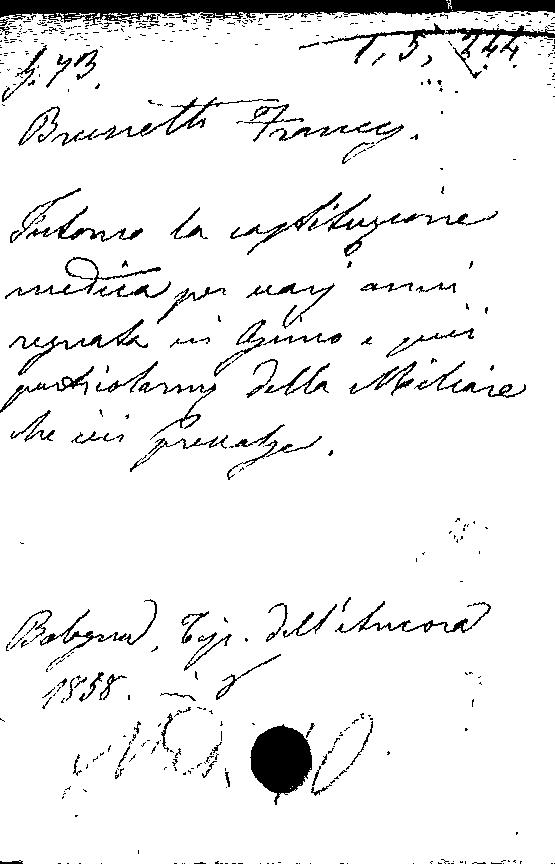 G. 73. 1, 5, 244
Brunetti Francs.
Intorno la costituzione
medica per varj anni
regnata in Osimo e più
particolarmte della Miliare
che ivi prevalse.
Bologna, Tip. dell'Ancora
1858. in 8